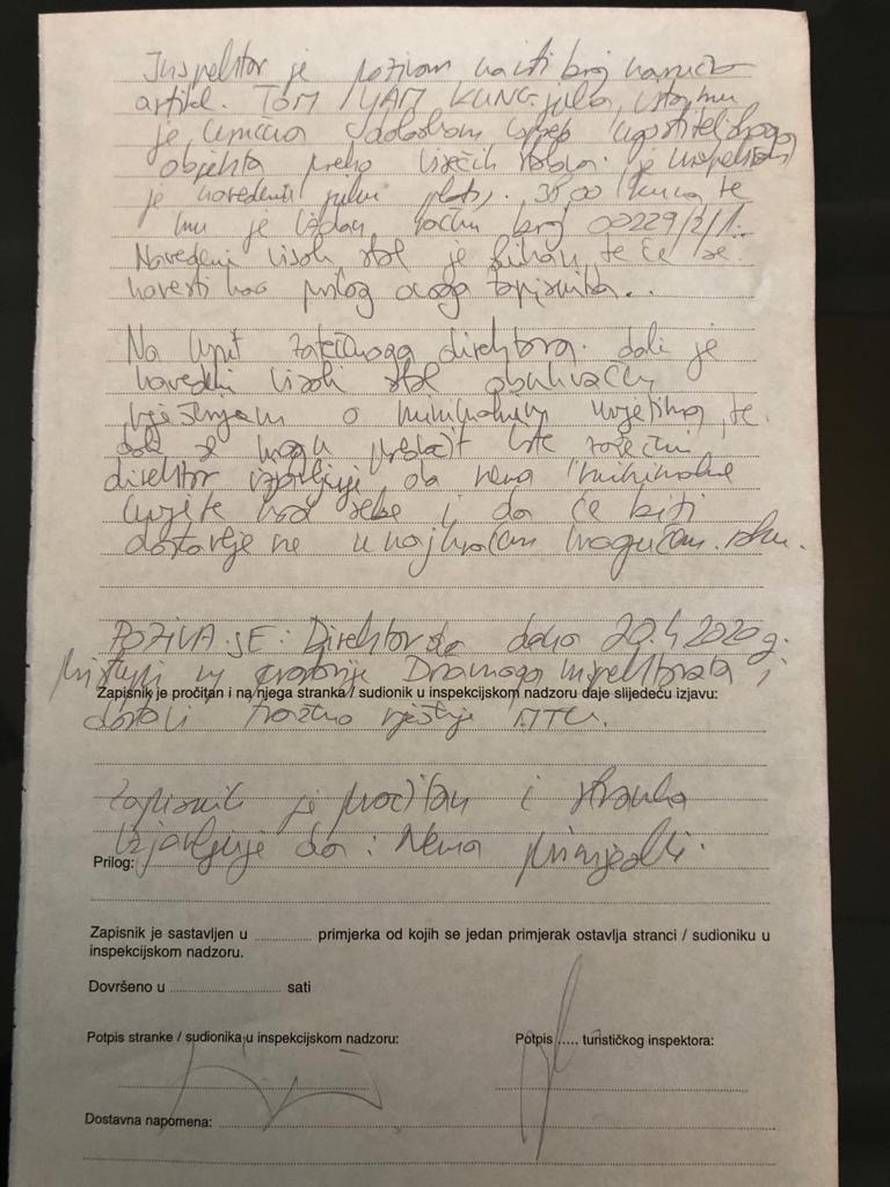 Inspektor je pozivom na isti broj naručio
artikl. TOM YAM KUNG jela, isto mu
je uručeno ugostiteljskoga
objekta preko visećih stola. je inspektor
je navedeni platio 35,00 kuna te
mu je izdan račun broj 00229/2/1.
Navedeni visoki stol je slikan te će se
navesti kao prilog ovoga zapisnika..
Na upit zatečenoga direktora. dali je
navedeni visoki stol obuhvaćen
rješenjem o minimalnim uvjetima, te
dali se mogu iste zatečeni
direktor izjavljuje da nema minimalne
uvjete kod sebe i da će biti
dostavljene u najkraćem mogućem roku.
POZIVA SE: Direktor da dana 20.4.2020 g.
pristupi u prostorije Državnoga inspektorata i
Zapisnik je pročitan i na njega stranka / sudionik u inspekcijskom nadzoru daje slijedeću izjavu:
dostavi rješenje MTU.
Zapisnik je pročitan i stranka
izjavljuje da: Nema primjedbi.
Prilog:
Zapisnik je sastavljen u ............... primjerka od kojih se jedan primjerak ostavlja stranci / sudioniku u
inspekcijskom nadzoru.
Dovršeno u ............................ sati
Potpis stranke / sudionika u inspekcijskom nadzoru: Potpis ..... turističkog inspektora:
Dostavna napomena: